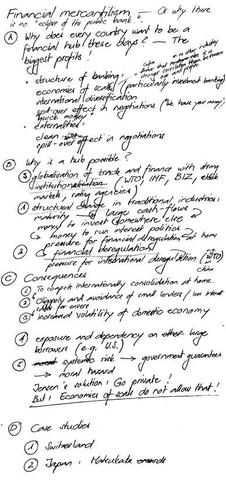 Financial mercantilism — Or why there
is no "eclipse of the public bank".
A Why does every country want to be a
financial hub these days? — The
biggest profits!
• structure of banking
economies of scale (particularly investment banking)
international diversification
spill-over effect in negotiations ("We have your money")
quick money
externalities
clean
spill-over effect in negotiations
B Why is a hub possible?
globalization of trade and finance with strong
institutionalization (WTO, IMF, BIZ,
markets, rating agencies)
1 structural change in traditional industries:
maturity → large cash-flows
→ money to invest somewhere else
→ money to run interest politics
pressure for financial deregulation at home
2 financial deregulation
pressure for international deregulation (WTO)
China
C Consequences
1 To compete internationally consolidation at home.
2 Oligopoly and avoidance of small lenders / low interest
rates for savers
3 increased volatility of domestic economy
4 exposure and dependency on other large
borrowers (e.g. U.S.)
systemic risk → government guarantees
→ moral hazard
Jensen's solution: Go private!
But: Economies of scale do not allow that!
D Case studies
1 Switzerland
2 Japan: Matsukata